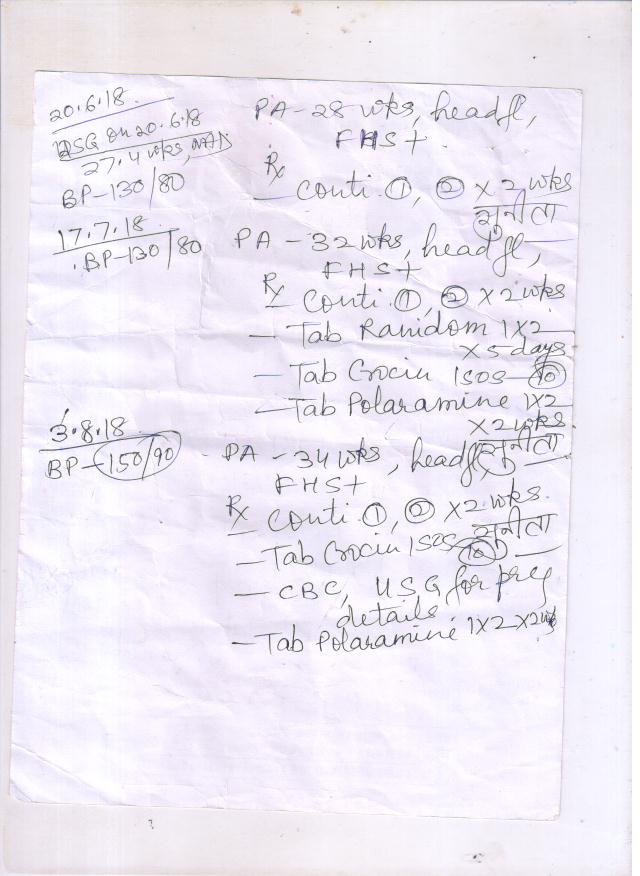 20.6.18
USG on 20.6.18
27.4 wks, NAD
BP-130/80
PA-28 wks, head fl,
FHS+
Rx
- Conti. ①, ② x 2 wks
सुनीता
17.7.18
BP-130/80
PA-32 wks, head fl,
FHS+
Rx
- Conti. ①, ② x 2 wks
- Tab Ranidom 1x2
x 5 days
- Tab Crocin 1SOS ⑩
- Tab Polaramine 1x2
x 2 wks
सुनीता
3.8.18
BP-150/90
PA-34 wks, head fl,
FHS+
Rx
- Conti. ①, ② x 2 wks.
सुनीता
- Tab Crocin 1SOS ⑩
- CBC, USG for preg
details
- Tab Polaramine 1x2 x 2wks